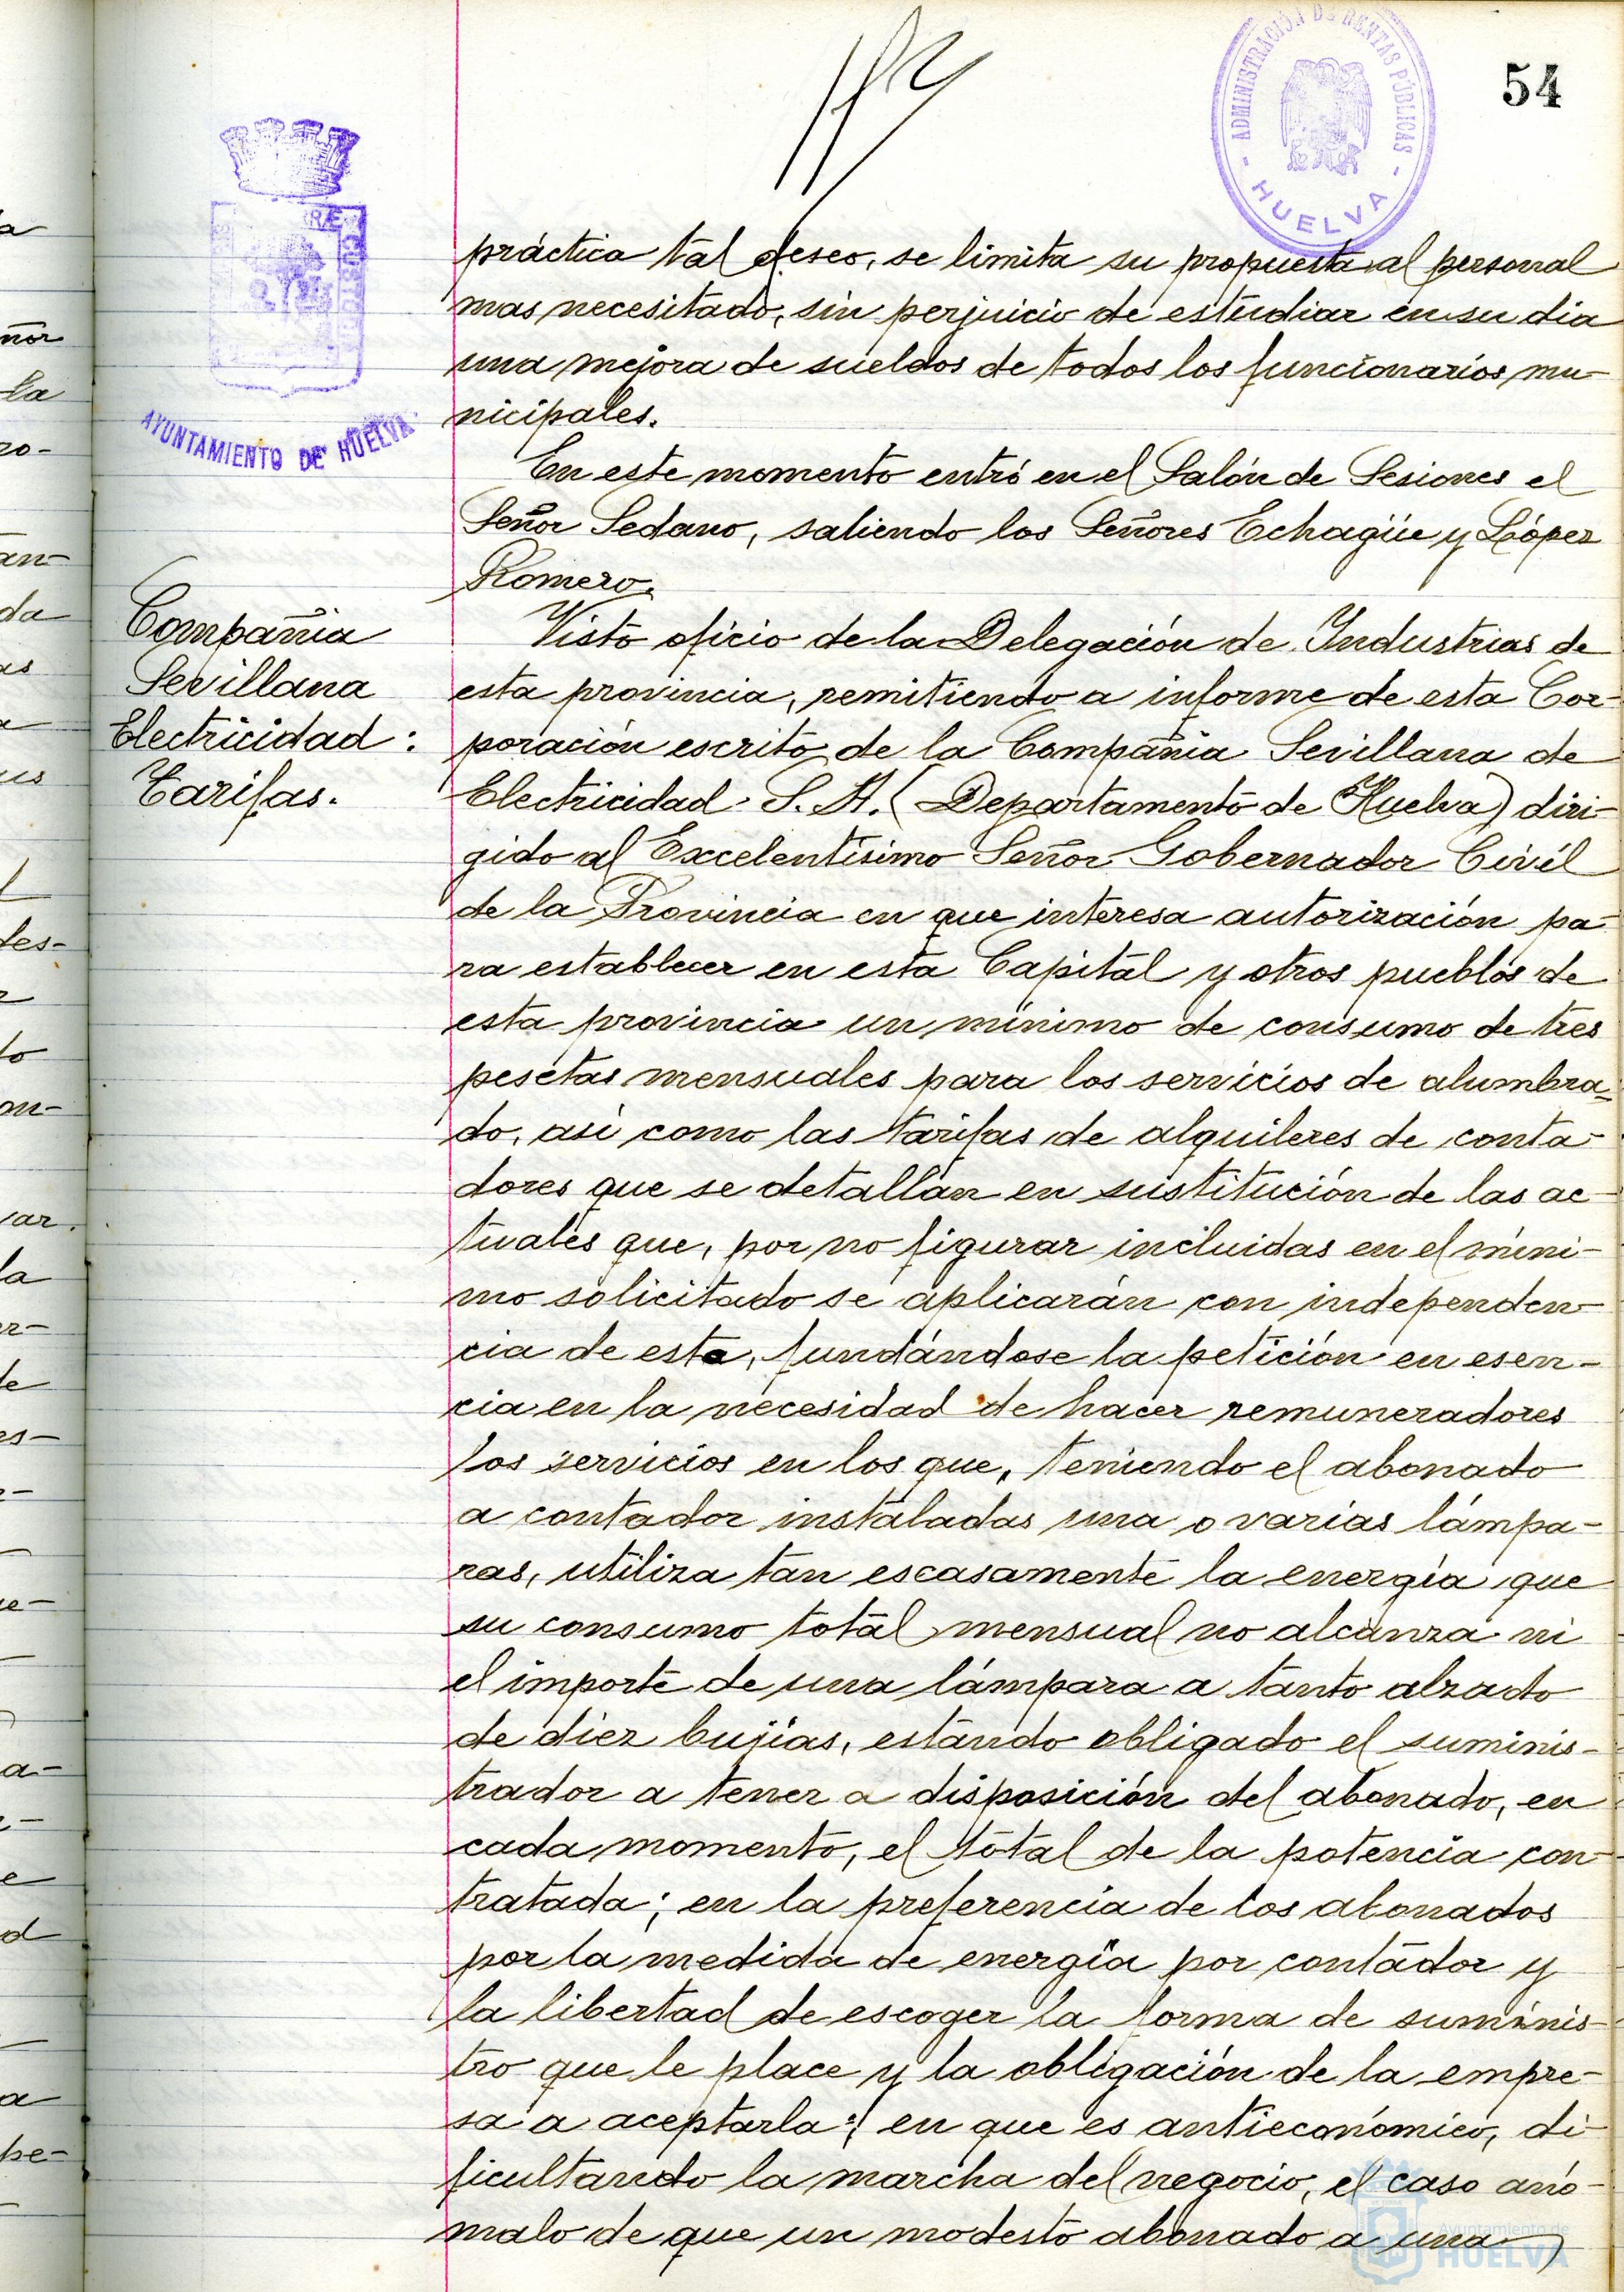 54
ADMINISTRACIÓN DE RENTAS PÚBLICAS
- HUELVA -
AYUNTAMIENTO DE HUELVA
práctica tal deseo, se limita su propuesta al personal
mas necesitado, sin perjuicio de estudiar en su dia
una mejora de sueldos de todos los funcionarios mu-
nicipales.
En este momento entró en el Salón de Sesiones el
Señor Sedano, saliendo los Señores Echagüe y López
Romero.
Compañia
Sevillana
Electricidad:
Tarifas.
Visto oficio de la Delegación de Industrias de
esta provincia, remitiendo a informe de esta Cor-
poración escrito de la Compañia Sevillana de
Electricidad S. A. (Departamento de Huelva) diri-
gido al Excelentísimo Señor Gobernador Civil
de la Provincia en que interesa autorización pa-
ra establecer en esta Capital y otros pueblos de
esta provincia un mínimo de consumo de tres
pesetas mensuales para los servicios de alumbra-
do, asi como las tarifas de alquileres de conta-
dores que se detallan en sustitución de las ac-
tuales que, por no figurar incluidas en el míni-
mo solicitado se aplicarán con independen-
cia de esta, fundándose la petición en esen-
cia en la necesidad de hacer remuneradores
los servicios en los que, teniendo el abonado
a contador instaladas una o varias lámpa-
ras, utiliza tan escasamente la energía que
su consumo total mensual no alcanza ni
el importe de una lámpara a tanto alzado
de diez bujías, estando obligado el suminis-
trador a tener a disposición del abonado, en
cada momento, el total de la potencia con-
tratada; en la preferencia de los abonados
por la medida de energía por contador y
la libertad de escoger la forma de suminis-
tro que le place y la obligación de la empre-
sa a aceptarla; en que es antieconómico, di-
ficultando la marcha del negocio, el caso anó-
malo de que un modesto abonado a una
Ayuntamiento de
HUELVA